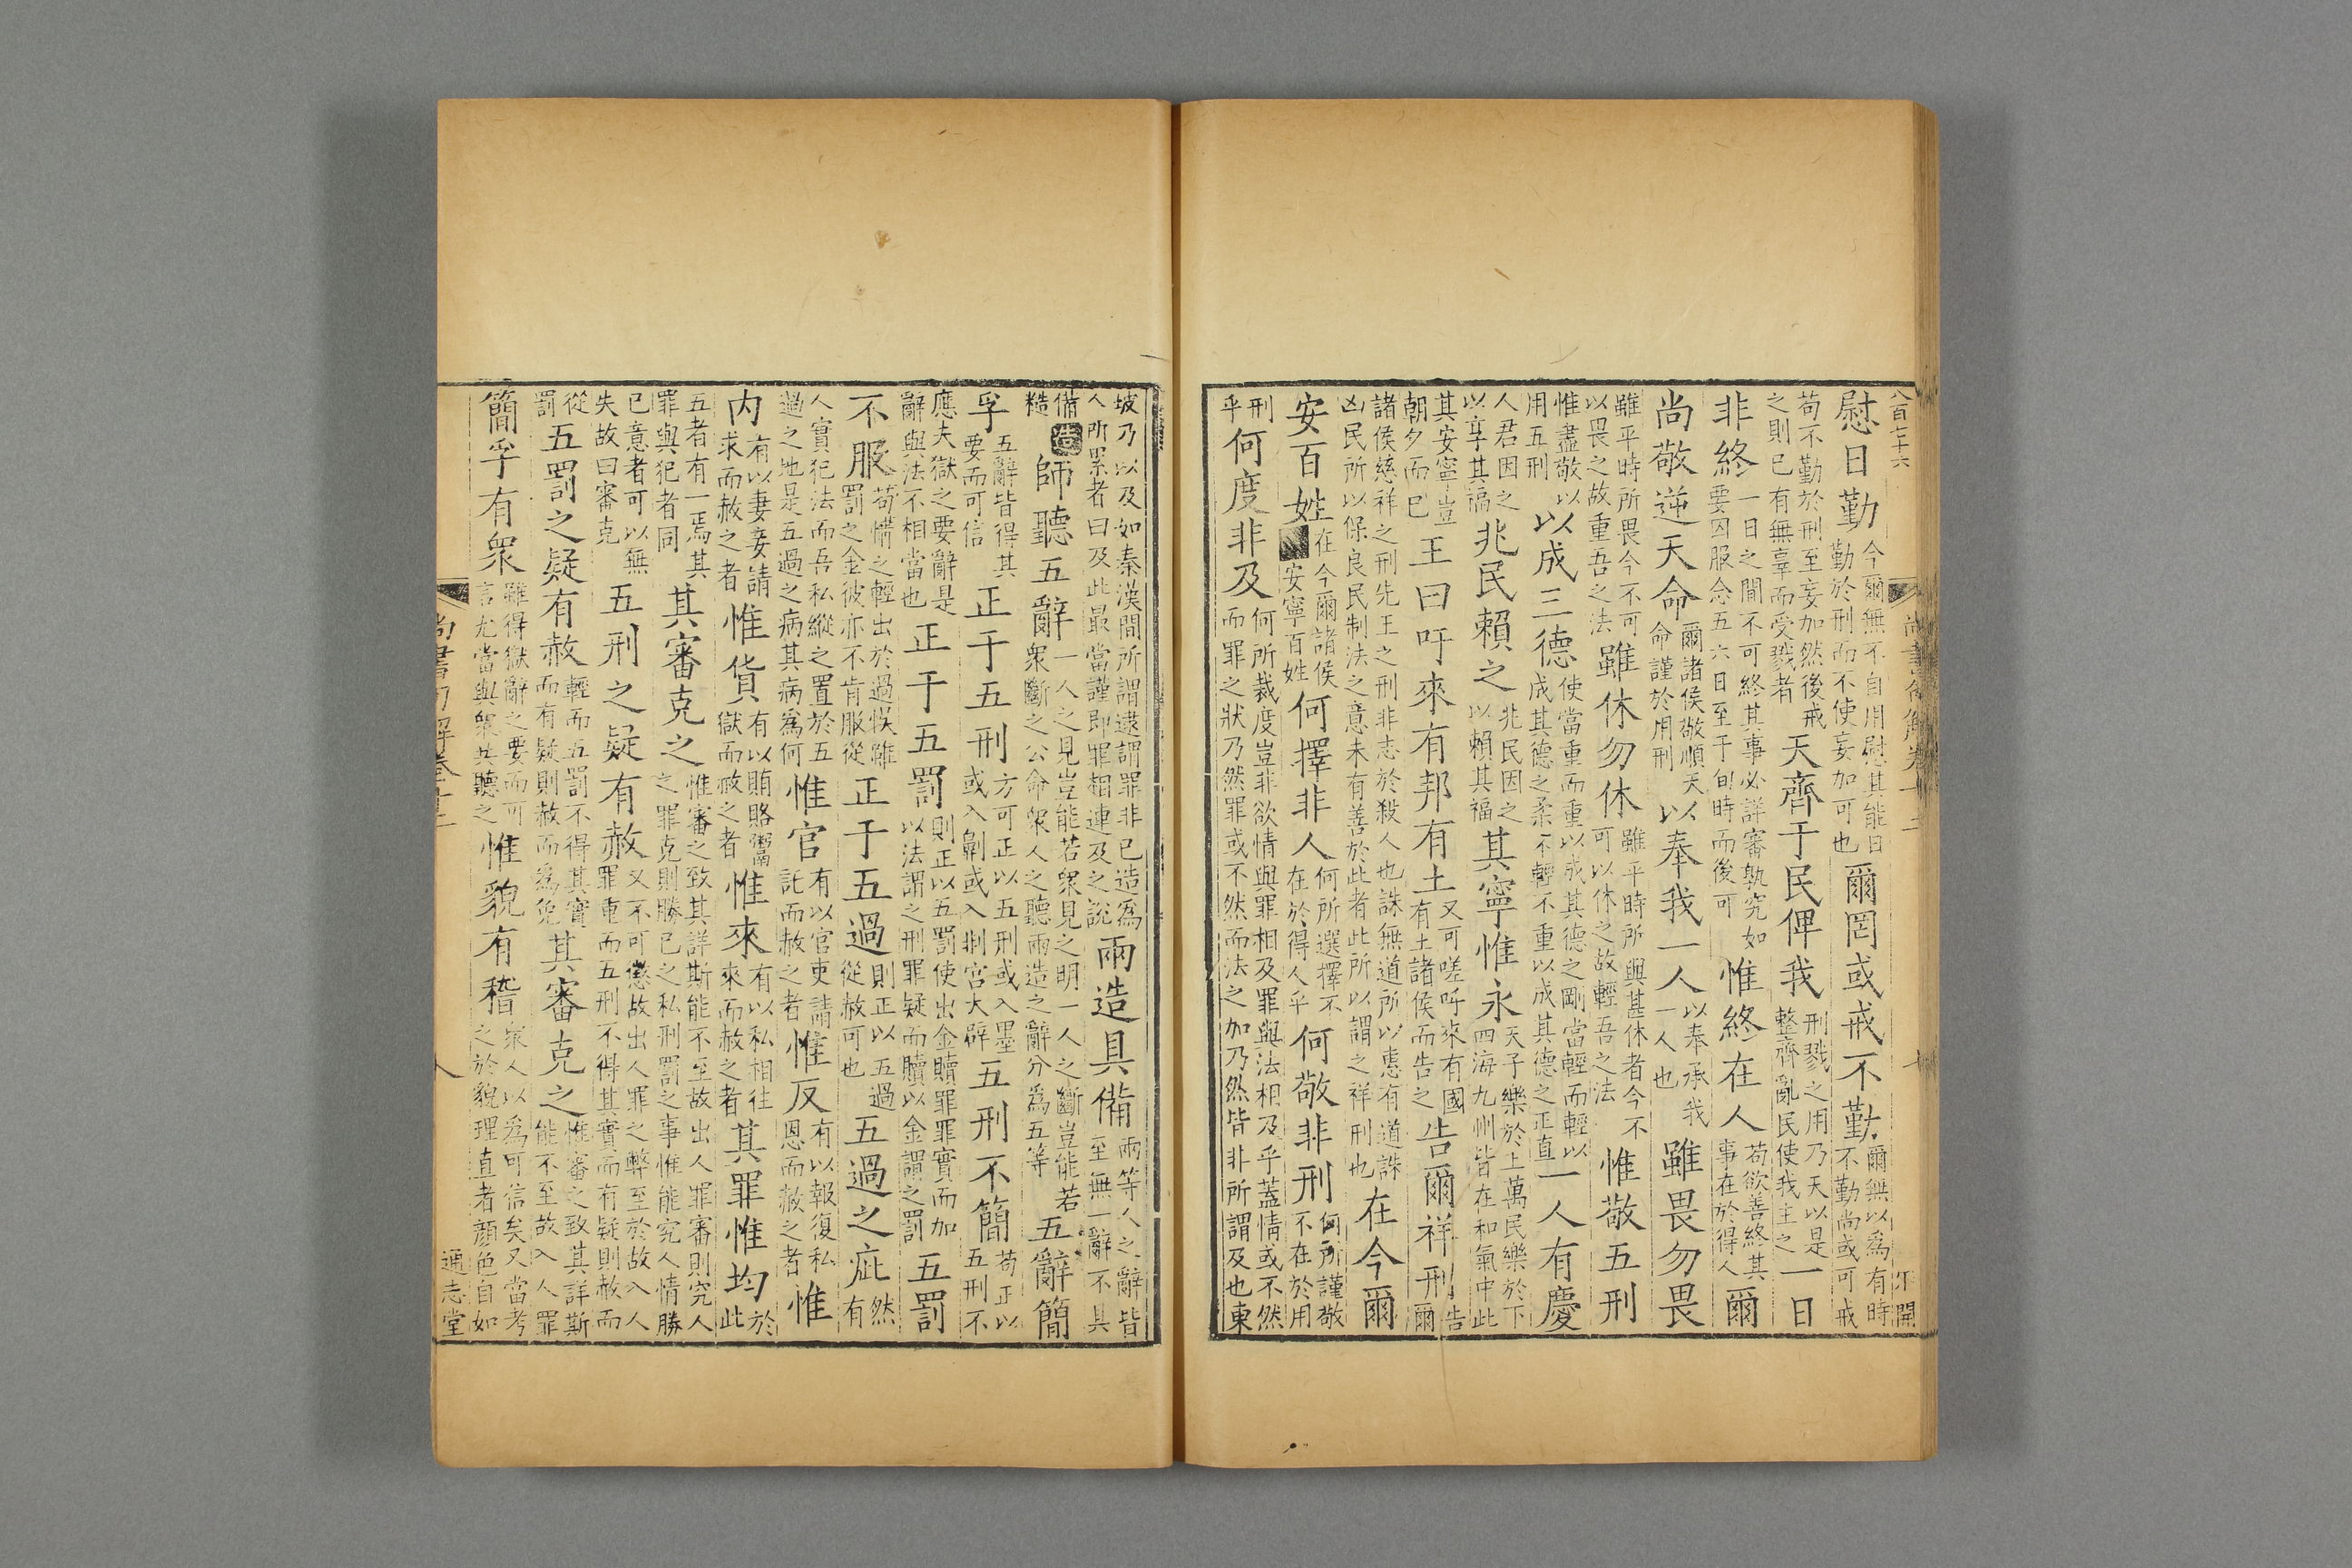 八百七十六
尚書句解卷十二
十
慰日勤今爾無不自用慰其能日勤於刑而不使妄加可也爾罔或戒不勤爾無以爲有時不勤尚或可戒
苟不勤於刑至妄加然後戒之則已有無辜而受戮者天齊于民俾我刑戮之用乃天以是整齊亂民使我主之一日
非終一日之間不可終其事必詳審孰究如要囚服念五六日至于旬時而後可惟終在人苟欲善終其事在於得人爾
尚敬逆天命爾諸侯敬順天命謹於用刑以奉我一人以奉承我一人也雖畏勿畏
雖平時所畏今不可以畏之故重吾之法雖休勿休雖平時所與甚休者今不可以休之故輕吾之法惟敬五刑
惟盡敬以用五刑以成三德使當重而重以成其德之剛當輕而輕以成其德之柔不輕不重以成其德之正直一人有慶
人君因之以享其福兆民賴之兆民因之以賴其福其寧惟永天子樂於上萬民樂於下四海九州皆在和氣中此
其安寧豈朝夕而已王曰吁來有邦有土又可嗟吁來有國有土諸侯而告之告爾祥刑告爾
諸侯慈祥之刑先王之刑非志於殺人也誅無道所以惠有道誅凶民所以保良民制法之意未有善於此者此所以謂之祥刑也在今爾
安百姓在今爾諸侯安寧百姓何擇非人何所選擇不在於得人乎何敬非刑何所謹敬不在於用
刑乎何度非及何所裁度豈非欲情與罪相及罪與法相及乎蓋情或不然而罪之狀乃然罪或不然而法之加乃然皆非所謂及也東
坡乃以及如秦漢間所謂逮謂罪非已造爲人所累者曰及此最當謹即罪相連及之說兩造具備兩等人之辭皆至無一辭不具
備造糙師聽五辭一人之見豈能若衆見之明一人之斷豈能若衆斷之公命衆人之聽兩造之辭分爲五等五辭簡
孚五辭皆得其要而可信正于五刑方可正以五刑或入墨或入劓或入剕宮大辟五刑不簡苟正以五刑不
應夫獄之要辭是辭與法不相當也正于五罰則正以五罰使出金贖罪罪實而加以法謂之刑罪疑而贖以金謂之罰五罰
不服苟情之輕出於過悞雖罰之金彼亦不肯服從正于五過則正以五過從赦可也五過之疵然有
人實犯法而吾私縱之置於五過之地是五過之病其病爲何惟官有以官吏請託而赦之者惟反有以報復私恩而赦之者惟
内有以妻妾請求而赦之者惟貨有以賄賂鬻獄而赦之者惟來有以私相往來而赦之者其罪惟均於此
五者有一焉其罪與犯者同其審克之惟審之致其詳斯能不至故出人罪審則究人之罪克則勝已之私刑罰之事惟能究人情勝
已意者可以無失故曰審克五刑之疑有赦又不可懲故出人罪之弊至於故入人罪重而五刑不得其實而有疑則赦而
從罰五罰之疑有赦輕而五罰不得其實而有疑則赦而爲免其審克之惟審之致其詳斯能不至故入人罪
簡孚有衆雖得獄辭之要而可言尤當與衆共聽之惟貌有稽衆人以爲可信矣又當考之於貌理直者顔色自如
尚書句解卷十二
通志堂